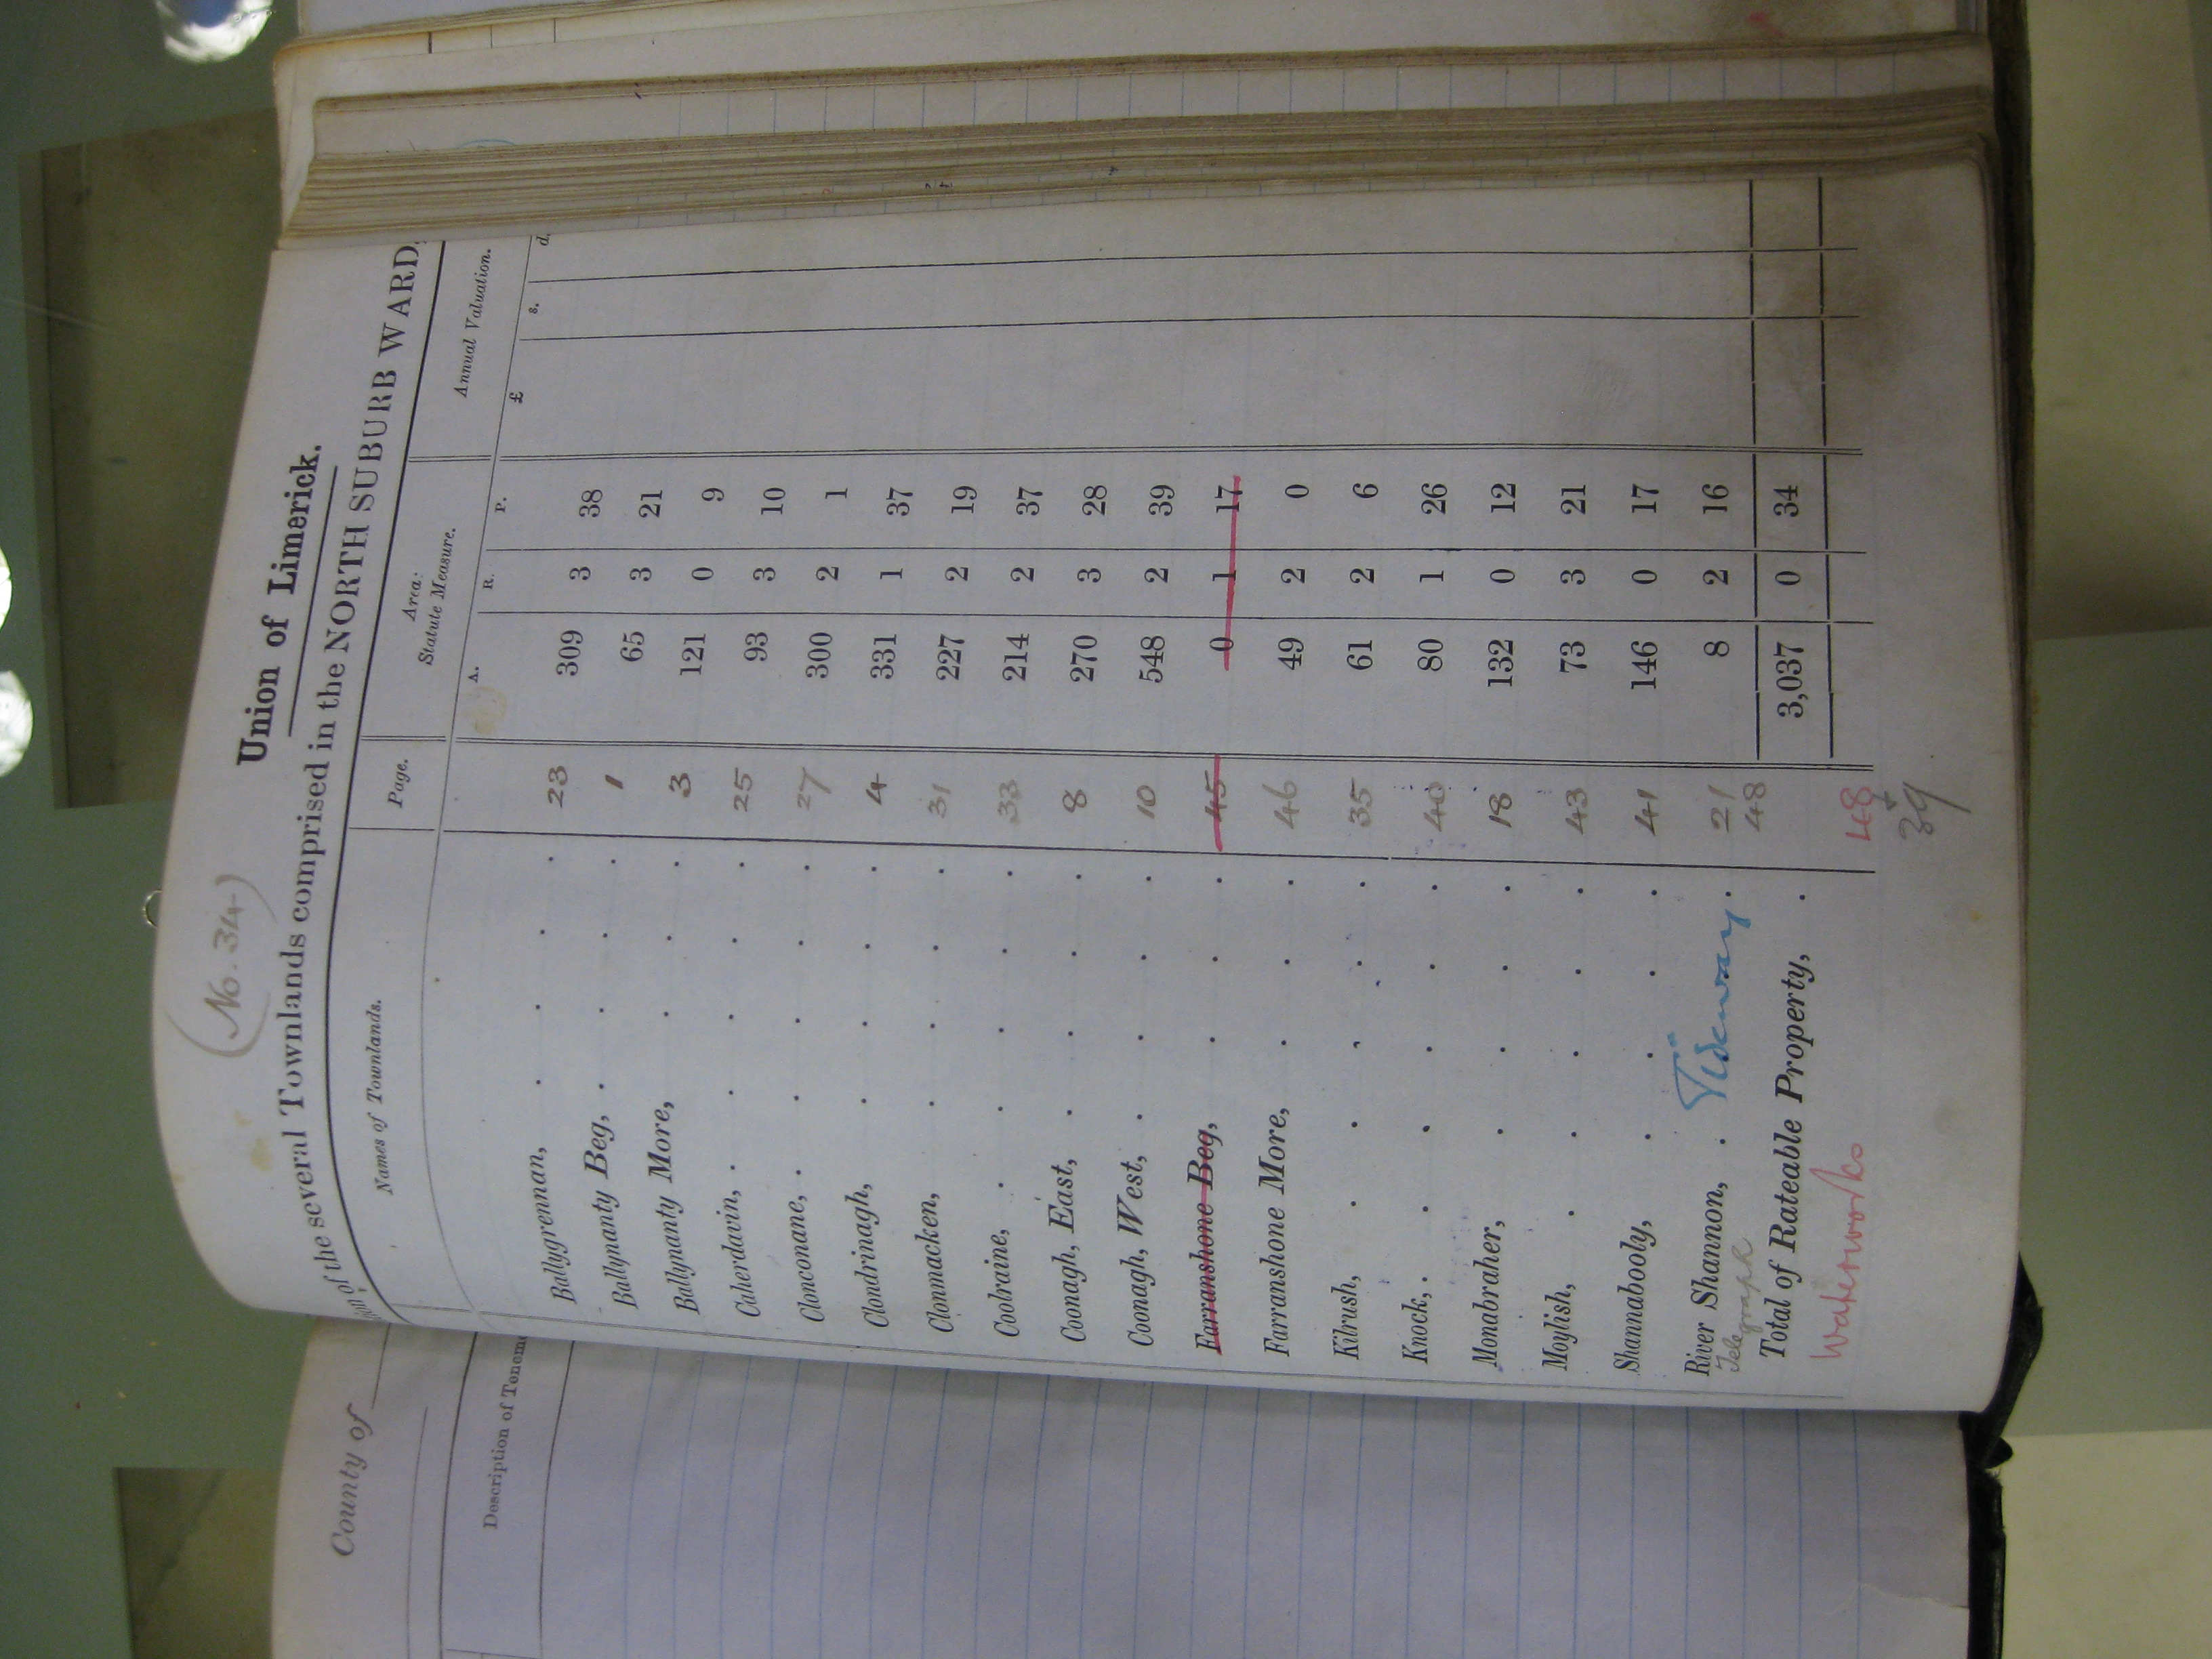 (No. 34)
Union of Limerick.
of the several Townlands comprised in the NORTH SUBURB WARD,
Names of Townlands. Page. Area: Statute Measure. Annual Valuation.
A. R. P. £ s. d.
Ballygrennan, 23 309 3 38
Ballynanty Beg, 1 65 3 21
Ballynanty More, 3 121 0 9
Caherdavin, 25 93 3 10
Clonconane, 27 300 2 1
Clondrinagh, 4 331 1 37
Clonmacken, 31 227 2 19
Coolraine, 33 214 2 37
Coonagh, East, 8 270 3 28
Coonagh, West, 10 548 2 39
Farranshone Beg, 45 0 1 17
Farranshone More, 46 49 2 0
Kilrush, 35 61 2 6
Knock, 40 80 1 26
Monabraher, 18 132 0 12
Moylish, 43 73 3 21
Shannabooly, 41 146 0 17
River Shannon, Tideway 21 8 2 16
Telegraph 48
Total of Rateable Property, 3,037 0 34
Waterworks 48
39
County of
Description of Tenem